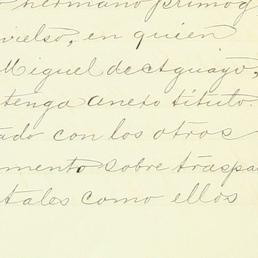 hermano primog
vielso, en quien
Miguel de Aguayo,
tenga anexo título.
ado con los otros
mento sobre traspa
tales como ellos